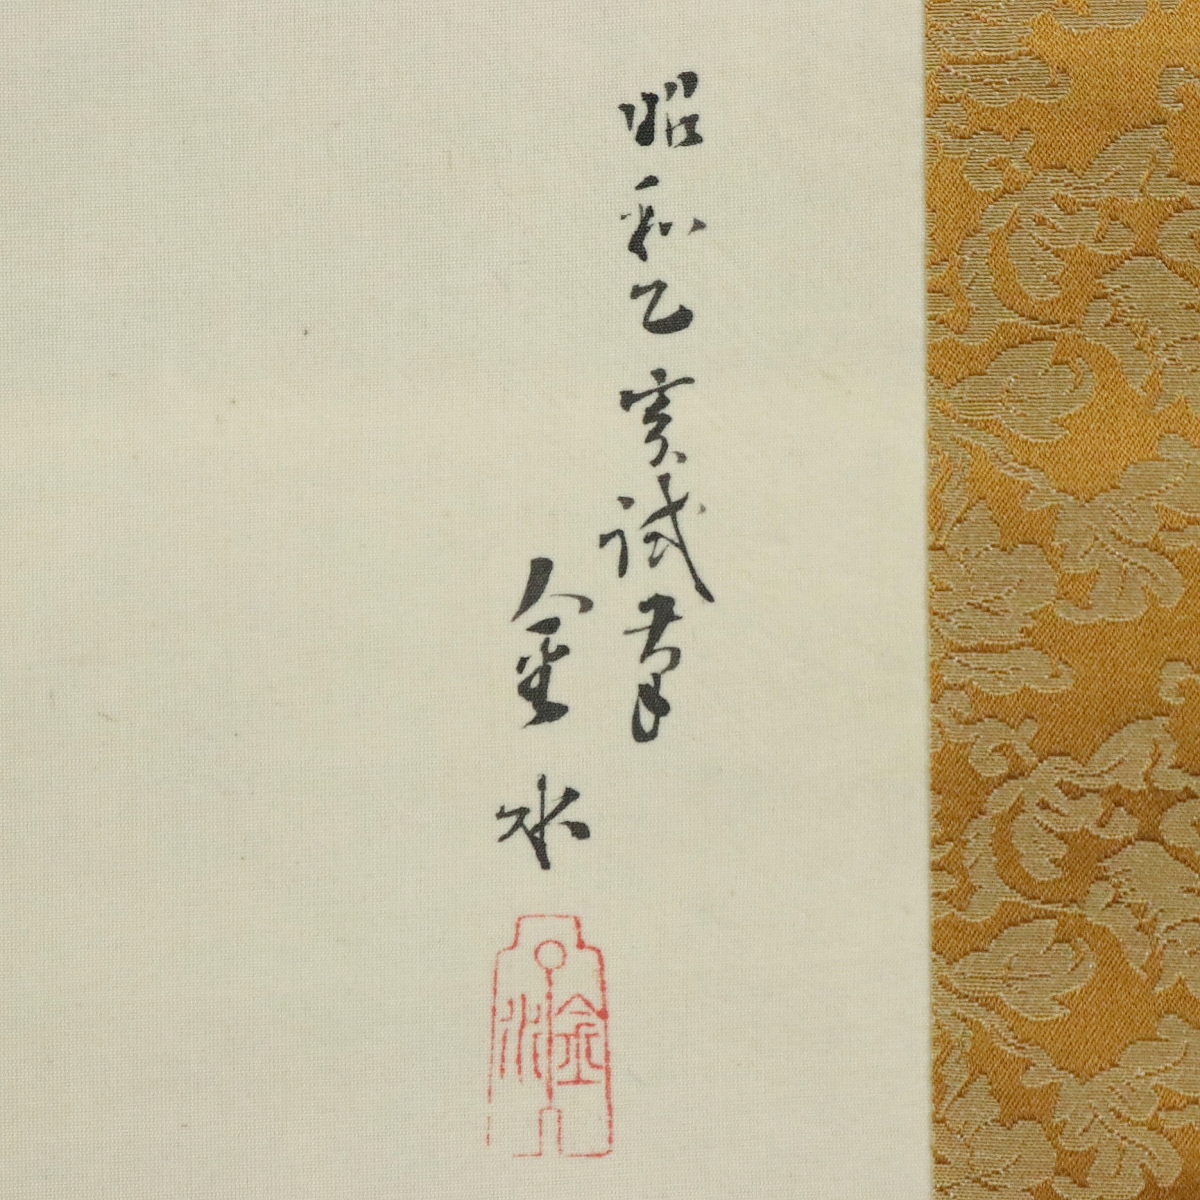 昭和乙亥試筆
金水
金水